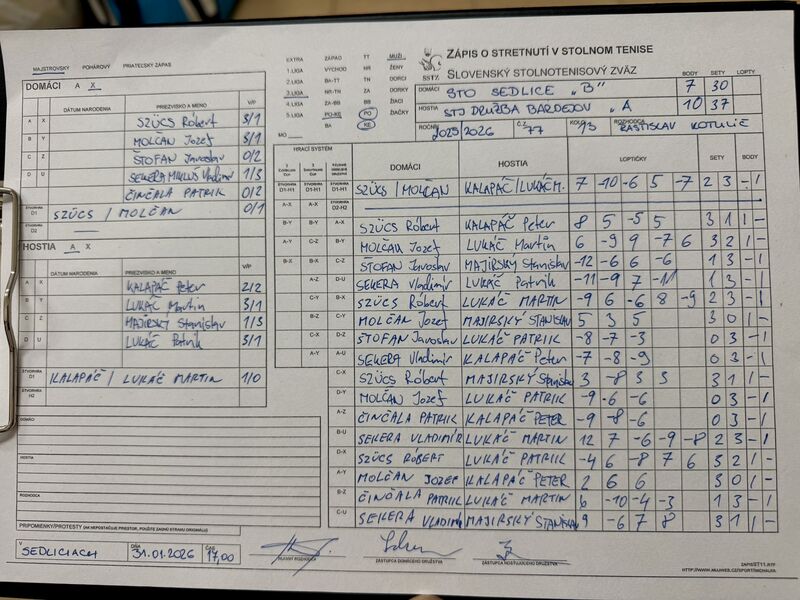 MAJSTROVSKÝ POHÁROVÝ PRIATEĽSKÝ ZÁPAS
DOMÁCI A X
DÁTUM NARODENIA PRIEZVISKO A MENO V/P
A X SZÜCS Róbert 3/1
B Y MOLČAN Jozef 3/1
C Z ŠTOFAN Jaroslav 0/2
D U SEKERA MIKLUŠ Vladimír 1/3
ČINČALA PATRIK 0/2
ŠTVORHRA D1 SZÜCS / MOLČAN 0/1
ŠTVORHRA D2
HOSTIA A X
DÁTUM NARODENIA PRIEZVISKO A MENO V/P
A X KALAPÁČ Peter 2/2
B Y LUKÁČ Martin 3/1
C Z MAJIRSKY Stanislav 1/3
D U LUKÁČ Patrik 3/1
ŠTVORHRA D1 KALAPÁČ / LUKÁČ MARTIN 1/0
ŠTVORHRA H2
DOMÁCI
HOSTIA
ROZHODCA
PRIPOMIENKY/PROTESTY (AK NEPOSTAČUJE PRIESTOR, POUŽITE ZADNÚ STRANU ORIGINÁLU)
V SEDLICIACH DŇA 31.01.2026 ČAS 17,00
HLAVNÝ ROZHODCA ZÁSTUPCA DOMÁCEHO DRUŽSTVA ZÁSTUPCA HOSŤUJÚCEHO DRUŽSTVA
EXTRA ZÁPAD TT MUŽI
1.LIGA VÝCHOD NR ŽENY
2.LIGA BA-TT TN DORCI
3.LIGA NR-TN ZA DORKY
4.LIGA ZA-BB BB ŽIACI
5.LIGA PO-KE PO ŽIAČKY
MO BA KE
SSTZ
ZÁPIS O STRETNUTÍ V STOLNOM TENISE
SLOVENSKÝ STOLNOTENISOVÝ ZVÄZ
BODY SETY LOPTY
DOMÁCI STO SEDLICE "B" 7 30
HOSTIA STJ DRUŽBA BARDEJOV "A" 10 37
ROČNÍK 2025/2026 Č.Z. 77 KOLO 13 ROZHODCA RASTISLAV KOTULIČ
HRACÍ SYSTÉM DOMÁCI HOSTIA LOPTIČKY SETY BODY
D1-H1 D1-H1 D1-H1 SZÜCS / MOLČAN KALAPÁČ/LUKÁČ M. 7 -10 -6 5 -7 2 3 - 1
A-X D2-H2
B-Y A-X SZÜCS Róbert KALAPÁČ Peter 8 5 -5 5 3 1 1 -
A-Y C-Z B-Y MOLČAN Jozef LUKÁČ Martin 6 -9 9 -7 6 3 2 1 -
B-X B-X C-Z ŠTOFAN Jaroslav MAJIRSKY Stanislav -12 -6 6 -6 1 3 - 1
A-Z D-U SEKERA Vladimír LUKÁČ Patrik -11 -9 7 -11 1 3 - 1
C-Y B-X SZÜCS Róbert LUKÁČ MARTIN -9 6 -6 8 -9 2 3 - 1
B-Z C-Y MOLČAN Jozef MAJIRSKÝ STANISLAV 5 3 5 3 0 1 -
C-X D-Z ŠTOFAN Jaroslav LUKÁČ PATRIK -8 -7 -3 0 3 - 1
A-Y A-U SEKERA Vladimír KALAPÁČ Peter -7 -8 -9 0 3 - 1
C-X SZÜCS Róbert MAJIRSKÝ Stanislav 3 -8 3 3 3 1 1 -
D-Y MOLČAN Jozef LUKÁČ PATRIK -9 -6 -6 0 3 - 1
A-Z ČINČALA PATRIK KALAPÁČ PETER -9 -8 -6 0 3 - 1
B-U SEKERA VLADIMÍR LUKÁČ MARTIN 12 7 -6 -9 -8 2 3 - 1
D-X SZÜCS RÓBERT LUKÁČ PATRIK -4 6 -8 7 6 3 2 1 -
A-Y MOLČAN JOZEF KALAPÁČ PETER 2 6 6 3 0 1 -
B-Z ČINČALA PATRIK LUKÁČ MARTIN 6 -10 -4 -3 1 3 - 1
C-U SEKERA Vladimír MAJIRSKÝ STANISLAV 9 -6 7 8 3 1 1 -
ZAPISST11.RTF